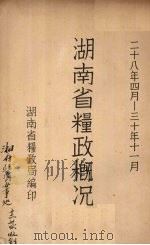 二十八年四月—三十年十一月
湖南省糧政概况
湖南省糧政局編印